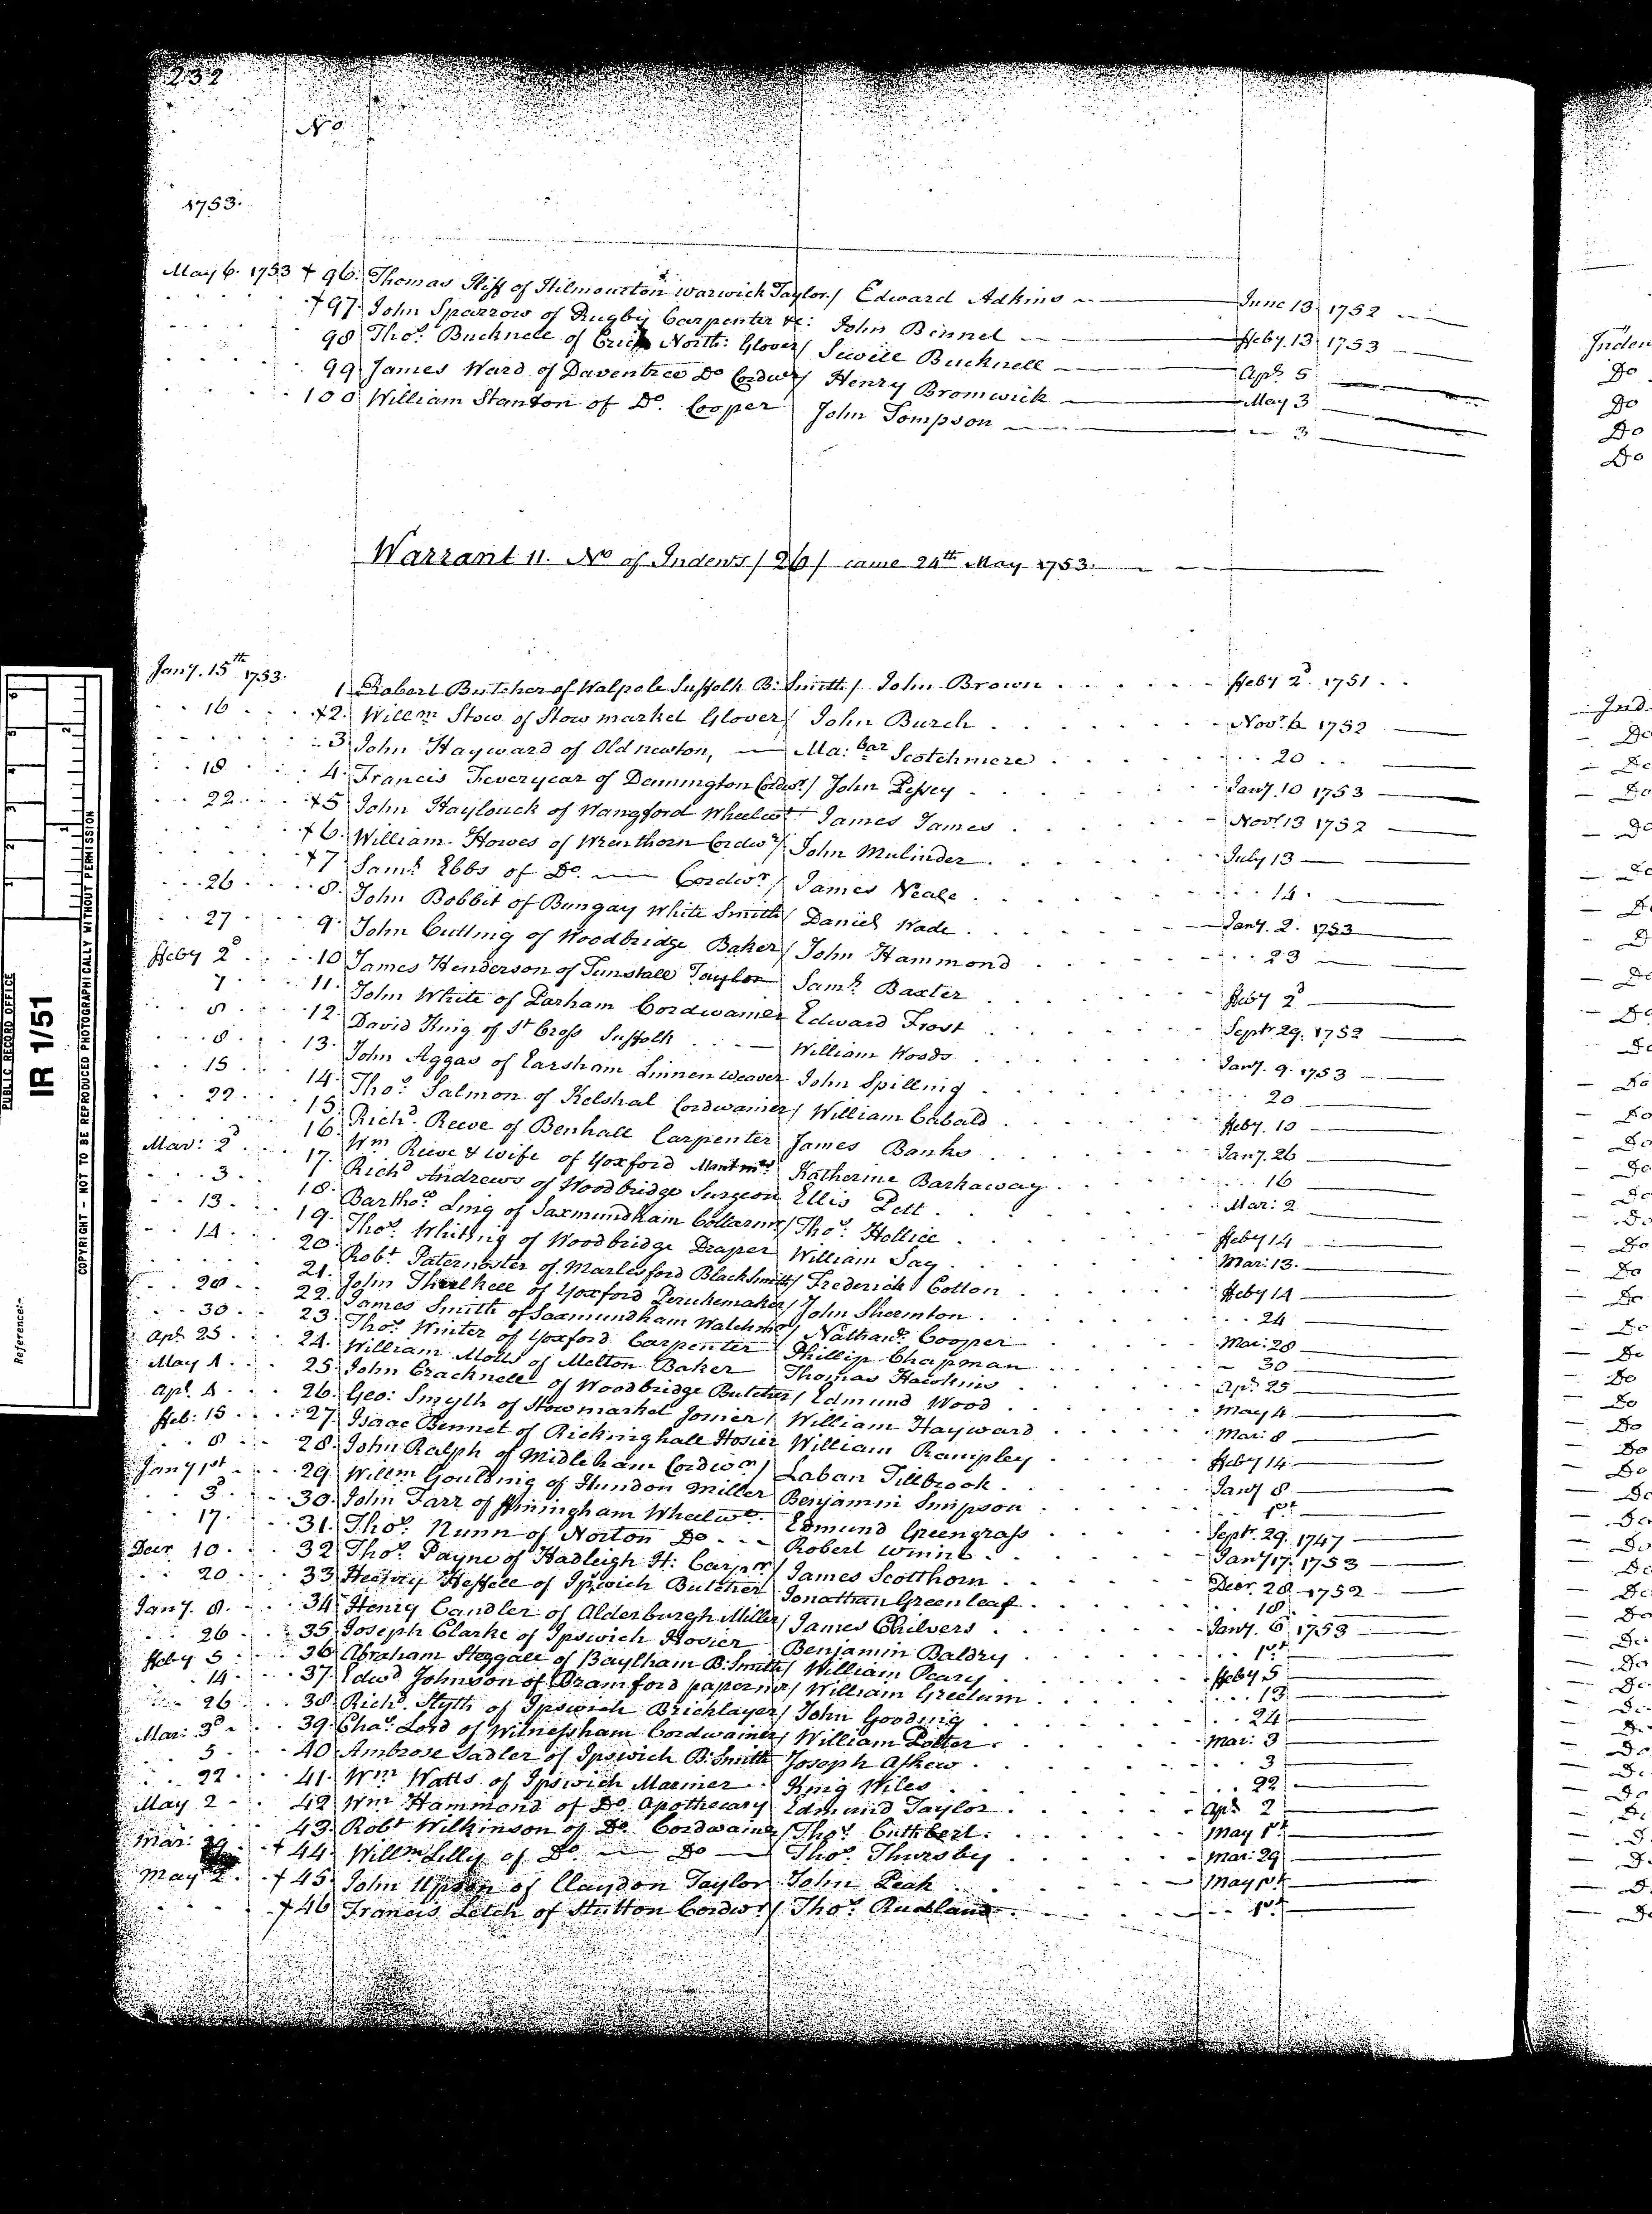 232
No
1753.
May 6. 1753 + 96. Thomas Iliff of Kilmourton Warwick Taylor / Edward Adkins June 13 1752
+ 97. John Sparrow of Rugby Carpenter &c: John Binnel ffeby. 13 1753
98 Thos. Bucknell of Crick North: Glover / Sewill Bucknell Apl. 5
99 James Ward of Daventree Do Cordwr / Henry Bromwich May 3
100 William Stanton of Do. Cooper John Tompson 3
Warrant 11. No of Indents / 26 / came 24th May 1753.
Jany. 15th 1753. 1 Robert Butcher of Walpole Suffolk B: Smith / John Brown ffeby 2d 1751
16 +2. Willm Stow of Stowmarket Glover / John Burch Novr. 6 1752
3 John Hayward of Old newton, Ma: bar Scotchmere 20
18 4. Francis Feveryear of Dennington Cordwr / John Pessey Jany. 10 1753
22 +5 John Haylouck of Wangford Wheelwt James James Novr. 13 1752
+6. William Howes of Wrenthorn Cordwr / John Mulinder July 13
+7 Saml. Ebbs of Do. Cordwr / James Neale 14
26 8. John Bobbit of Bungay White Smith / Daniel Wade Jany. 2. 1753
27 9. John Cutting of Woodbridge Baker / John Hammond 23
ffeby 2d 10 James Henderson of Tunstall Taylor Saml. Baxter ffeby 2d
7 11. John White of Parham Cordwainer Edward Frost Septr 29. 1752
8 12. David King of St Cross Suffolk William Woods Jany. 9. 1753
8 13. John Aggas of Earsham Linnen weaver John Spilling 20
15 14. Thos. Salmon of Kelshal Cordwainer / William Cabald ffeby. 10
22 15. Richd. Reeve of Benhall Carpenter James Banks Jany. 26
16. Wm Reeve & wife of Yoxford Mantmr Katherine Barkaway 16
Mar: 2d 17. Richd Andrews of Woodbridge Surgeon Ellis Pett Mar: 2
3 18. Bartho. Ling of Saxmundham Collarmr / Thos. Hollice ffeby 14
13 19. Thos. Whiting of Woodbridge Draper William Jay Mar: 13.
14 20. Robt. Paternoster of Marlesford BlackSmith / Frederick Cotton ffeby 14
21. John Thralkell of Yoxford Perukemaker / John Sherinton 24
28 22. James Smith of Saxmundham Watchmr / Nathanl. Cooper Mar: 28
30 23. Thos. Winter of Yoxford Carpenter Phillip Chapman 30
Apl. 25 24. William Molls of Melton Baker Thomas Hawkins Apl. 25
May 4 25. John Cracknell of Woodbridge Butcher / Edmund Wood May 4
Apl. 4 26. Geo: Smyth of Stowmarket Joiner / William Hayward Mar: 8
ffeb: 15 27. Isaac Bennet of Rickinghall Hosier William Rampley ffeby 14
8 28. John Ralph of Midleham Cordwr / Laban Tillbrook Jany 8
Jany 1st 29. Willm Goulding of Hundon Miller Benjamin Simpson 1st
3d 30. John Farr of ffiningham Wheelwt. Edmund Greengrass Septr. 29. 1747
17. 31. Thos. Nunn of Norton Do Robert Winno Jany 17. 1753
Decr 10 32 Thos. Payne of Hadleigh H: Carpr / James Scotthorn Decr. 28 1752
20 33 Henry Heffell of Ipswich Butcher Jonathan Greenleaf 18
Jany. 8. 34 Henry Candler of Alderburgh Miller / James Chilvers Jany. 6 1753
26 35 Joseph Clarke of Ipswich Hosier Benjamin Baldry 1st
ffeby 5 36 Abraham Steggall of Baylham B: Smith / William Peary ffeby 5
14 37 Edwd Johnson of Bramford papermr / William Greetum 13
26 38 Richd. Styth of Ipswich Bricklayer / John Gooding 24
Mar: 3d 39. Chas. Lord of Witnessham Cordwainer / William Potter Mar: 3
5 40 Ambrose Sadler of Ipswich B: Smith Joseph Askew 3
22 41. Wm Watts of Ipswich Mariner King Wiles 22
May 2 42 Wm Hammond of Do. Apothecary Edmund Taylor Apl. 2
43. Robt Wilkinson of Do. Cordwainer / Thos. Cuthbert May 1st
Mar: 29 +44. Willm Lilly of Do Do Thos. Thursby Mar: 29
May 2 +45. John Upson of Claydon Taylor John Peak May 1st
+46 Francis Letch of Stutton Cordwr / Thos. Rudland 1st
PUBLIC RECORD OFFICE
IR 1/51
Reference:-
COPYRIGHT - NOT TO BE REPRODUCED PHOTOGRAPHICALLY WITHOUT PERMISSION